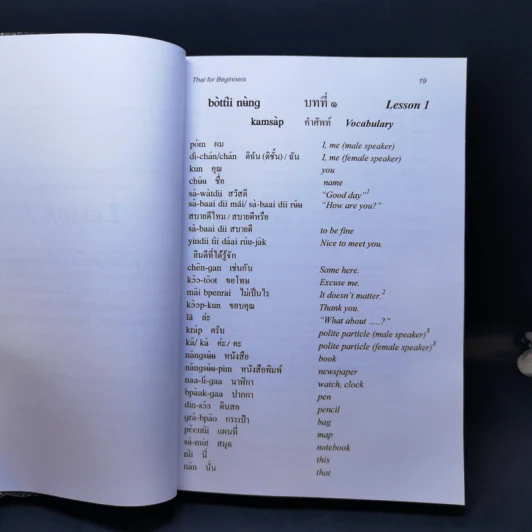 Thai for Beginners 19
bòtîi nùng บทที่ ๑ Lesson 1
kamsàp คำศัพท์ Vocabulary
pǒm ผม I, me (male speaker)
dì-chán/chán ดิฉัน (ดิชั้น) / ฉัน I, me (female speaker)
kun คุณ you
chʉ̂ʉ ชื่อ name
sà-wàtdii สวัสดี "Good day"¹
sà-baai dii mái/ sà-baai dii rʉ̌ʉ "How are you?"
สบายดีไหม / สบายดีหรือ
sà-baai dii สบายดี to be fine
yindii tîi dâai rúu-jàk Nice to meet you.
ยินดีที่ได้รู้จัก
chên-gan เช่นกัน Same here.
kɔ̌ɔ-tôot ขอโทษ Excuse me.
mâi bpenrai ไม่เป็นไร It doesn't matter.²
kɔ̀ɔp-kun ขอบคุณ Thank you.
lâ ล่ะ "What about .....?"
kráp ครับ polite particle (male speaker)³
kâ/ ká ค่ะ/ คะ polite particle (female speaker)³
nǎngsʉ̌ʉ หนังสือ book
nǎngsʉ̌ʉ-pim หนังสือพิมพ์ newspaper
naa-lí-gaa นาฬิกา watch, clock
bpàak-gaa ปากกา pen
din-sɔ̌ɔ ดินสอ pencil
grà-bpǎo กระเป๋า bag
pɛ̌ɛntîi แผนที่ map
sà-mùt สมุด notebook
nîi นี่ this
nân นั่น that